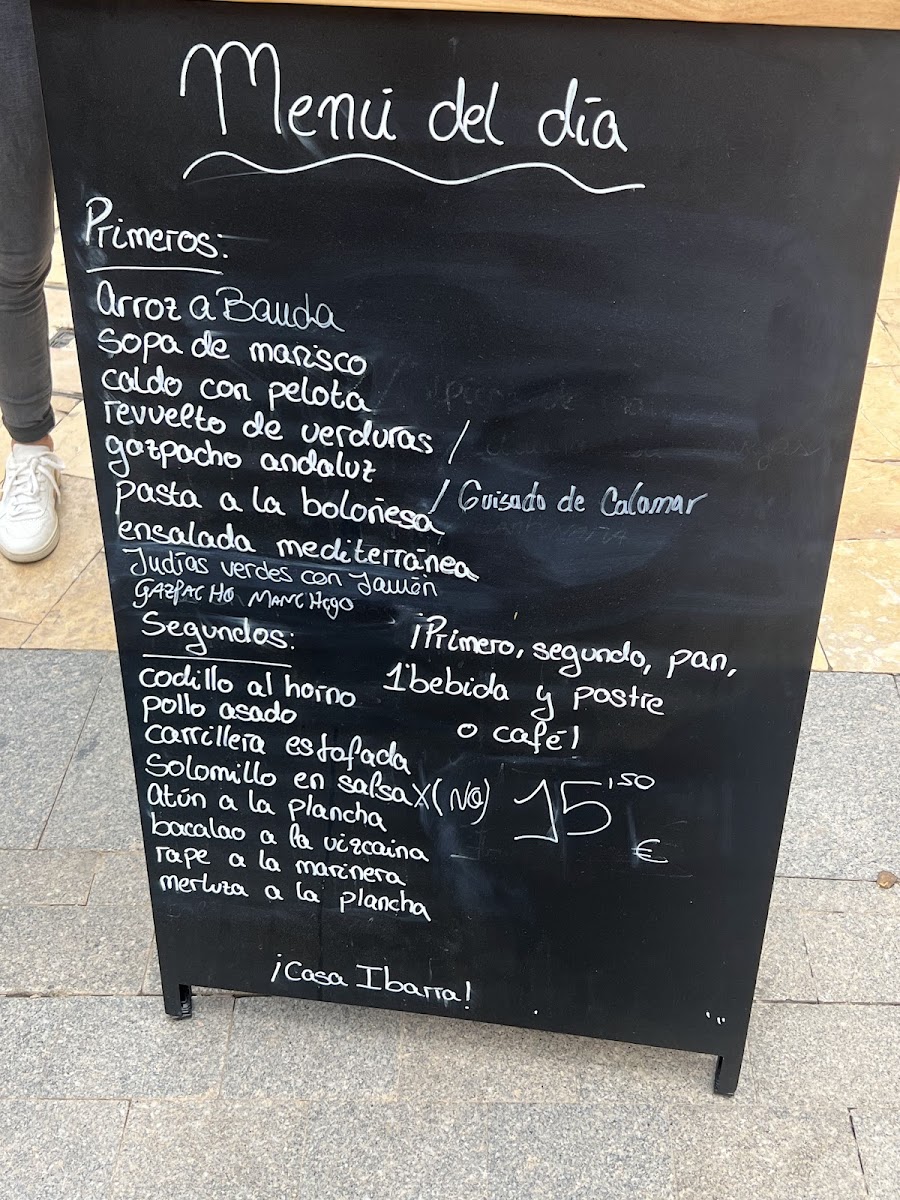 Menú del día
Primeros:
Arroz a Banda
sopa de marisco
caldo con pelota
revuelto de verduras /
gazpacho andaluz
pasta a la boloñesa / Guisado de Calamar
ensalada mediterránea
Judías verdes con Jamón
GAZPACHO MANCHEgo
Segundos:
¡Primero, segundo, pan,
1 bebida y postre
o café!
codillo al horno
pollo asado
carrillera estofada
Solomillo en salsa X (NO)
15,50
€
atún a la plancha
bacalao a la vizcaina
rape a la marinera
merluza a la plancha
¡Casa Ibarra!